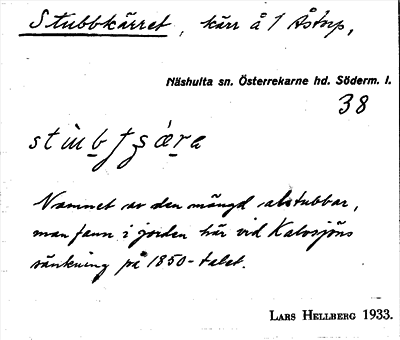 Stubbkärret, kärr å 1 Åstorp,
Näshulta sn. Österrekarne hd. Söderm. l.
38
Namnet av den mängd alstubbar,
man fann i jorden här vid Kalvsjöns
sänkning på 1850-talet.
LARS HELLBERG 1933.